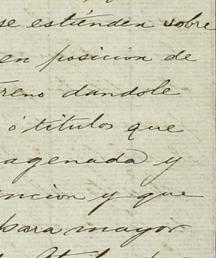 se estienden sobre
en posicion de
reno dandole
ó titulos que
agenada y
encion y que
para mayor